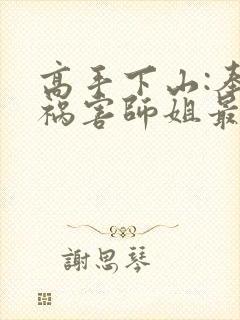 高手下山:奉
祸害师姐最
謝思琴